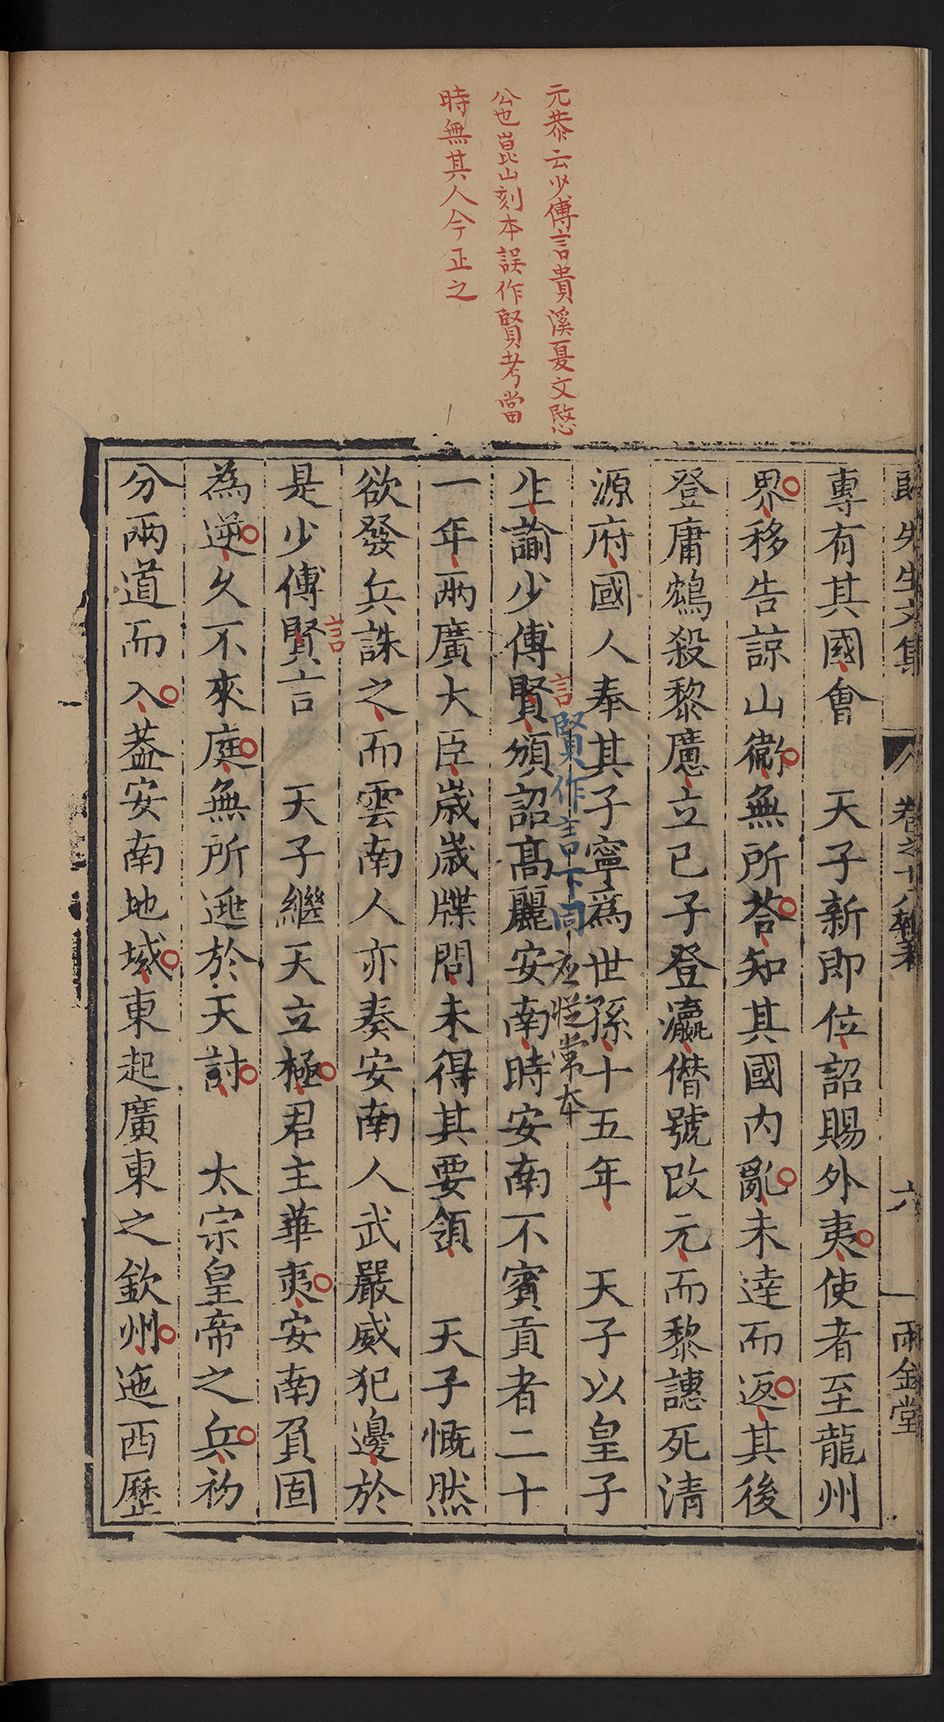 元恭云少傅言貴溪夏文愍
公也崑山刻本誤作賢考當
時無其人今正之
先生文集 卷之十 六 兩金堂
專有其國會 天子新即位詔賜外夷使者至龍州
界移告諒山衛無所荅知其國內亂未達而返其後
登庸鴆殺黎懬立己子登瀛僭號改元而黎譓死清
源府國人奉其子寧爲世孫十五年 天子以皇子
言賢作言下同 左從常本
生諭少傅賢頒詔髙麗安南時安南不賓貢者二十
一年兩廣大臣歲歲牒問未得其要領 天子慨然
欲發兵誅之而雲南人亦奏安南人武嚴威犯邊於
是少傅賢言 天子繼天立極君主華夷安南負固
言
為逆久不來庭無所逃於天討 太宗皇帝之兵初
分兩道而入葢安南地域東起廣東之欽州迤西歷